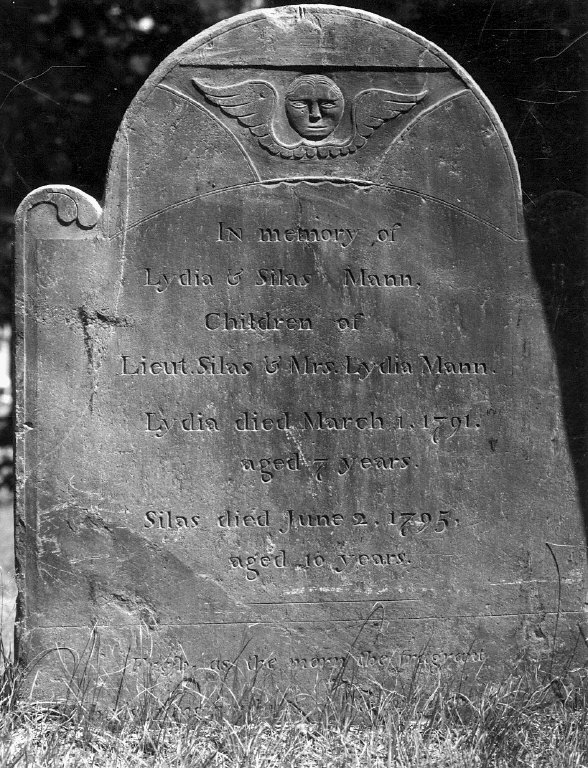 In memory of
Lydia & Silas Mann,
Children of
Lieut. Silas & Mrs. Lydia Mann.
Lydia died March 1, 1791.
aged 7 years.
Silas died June 2, 1795,
aged 10 years.
Fresh as the morn the fragrant